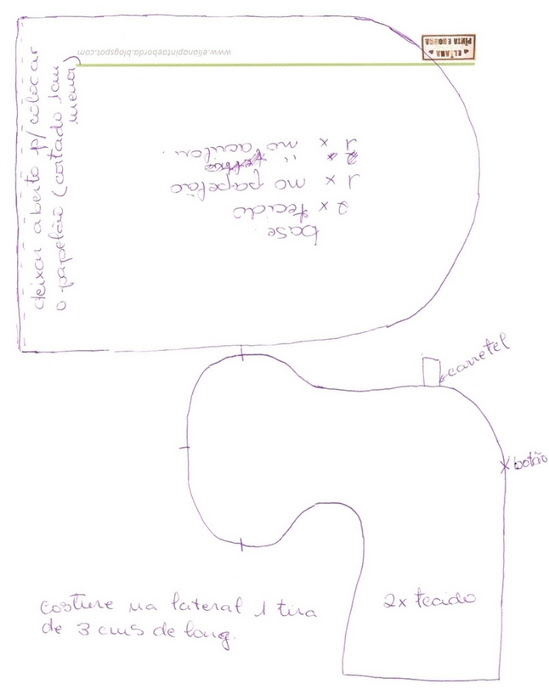 ELIANA
PINTA E BORDA
www.elianapintaeborda.blogspot.com
deixar aberto p/ colocar
o papelão (cortado 1cm
menor)
base.
2x tecido
1x no papelão
2x "
1x no acrilon.
carretel
botão
2x tecido
costure na lateral 1 tira
de 3 cms de larg.